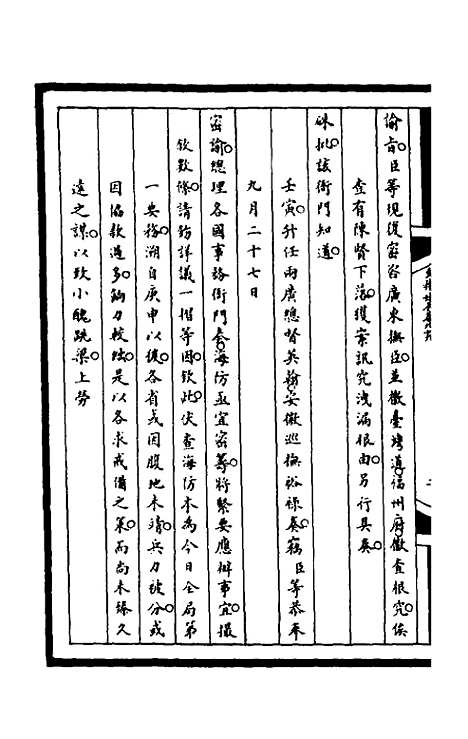 諭旨臣等現復密咨廣東撫臣並檄臺灣道福州府檄查根究俟
查有陳賢下落獲案訊究洩漏根由另行具奏
硃批該衙門知道
壬寅升任兩廣總督英翰安徽巡撫裕祿奏竊臣等恭奉
九月二十七日
密諭總理各國事務衙門奏海防亟宜密籌將緊要應辦事宜撮
敘數條請飭詳議一摺等因欽此伏查海防本為今日全局第
一要務溯自庚申以後各省或因腹地未靖兵力被分或
因協款過多餉力較絀是以各求戒備之策而尚未臻久
遠之謀以致小醜跳梁上勞